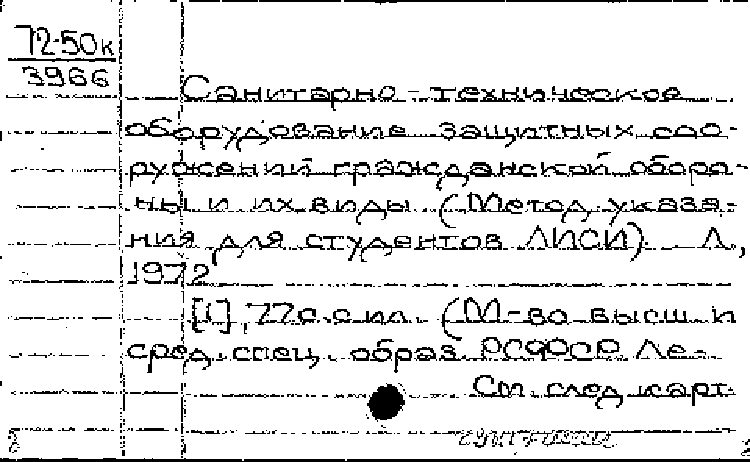 72-50к
3966
Санитарно-техническое
оборудование защитных соо-
ружений гражданской оборо-
ны и их виды. (Метод. указа-
ния для студентов ЛИСИ). Л.,
1972
[1], 77с. с ил. (М-во высш. и
сред. спец. образ. РСФСР. Ле-
См. след. карт.